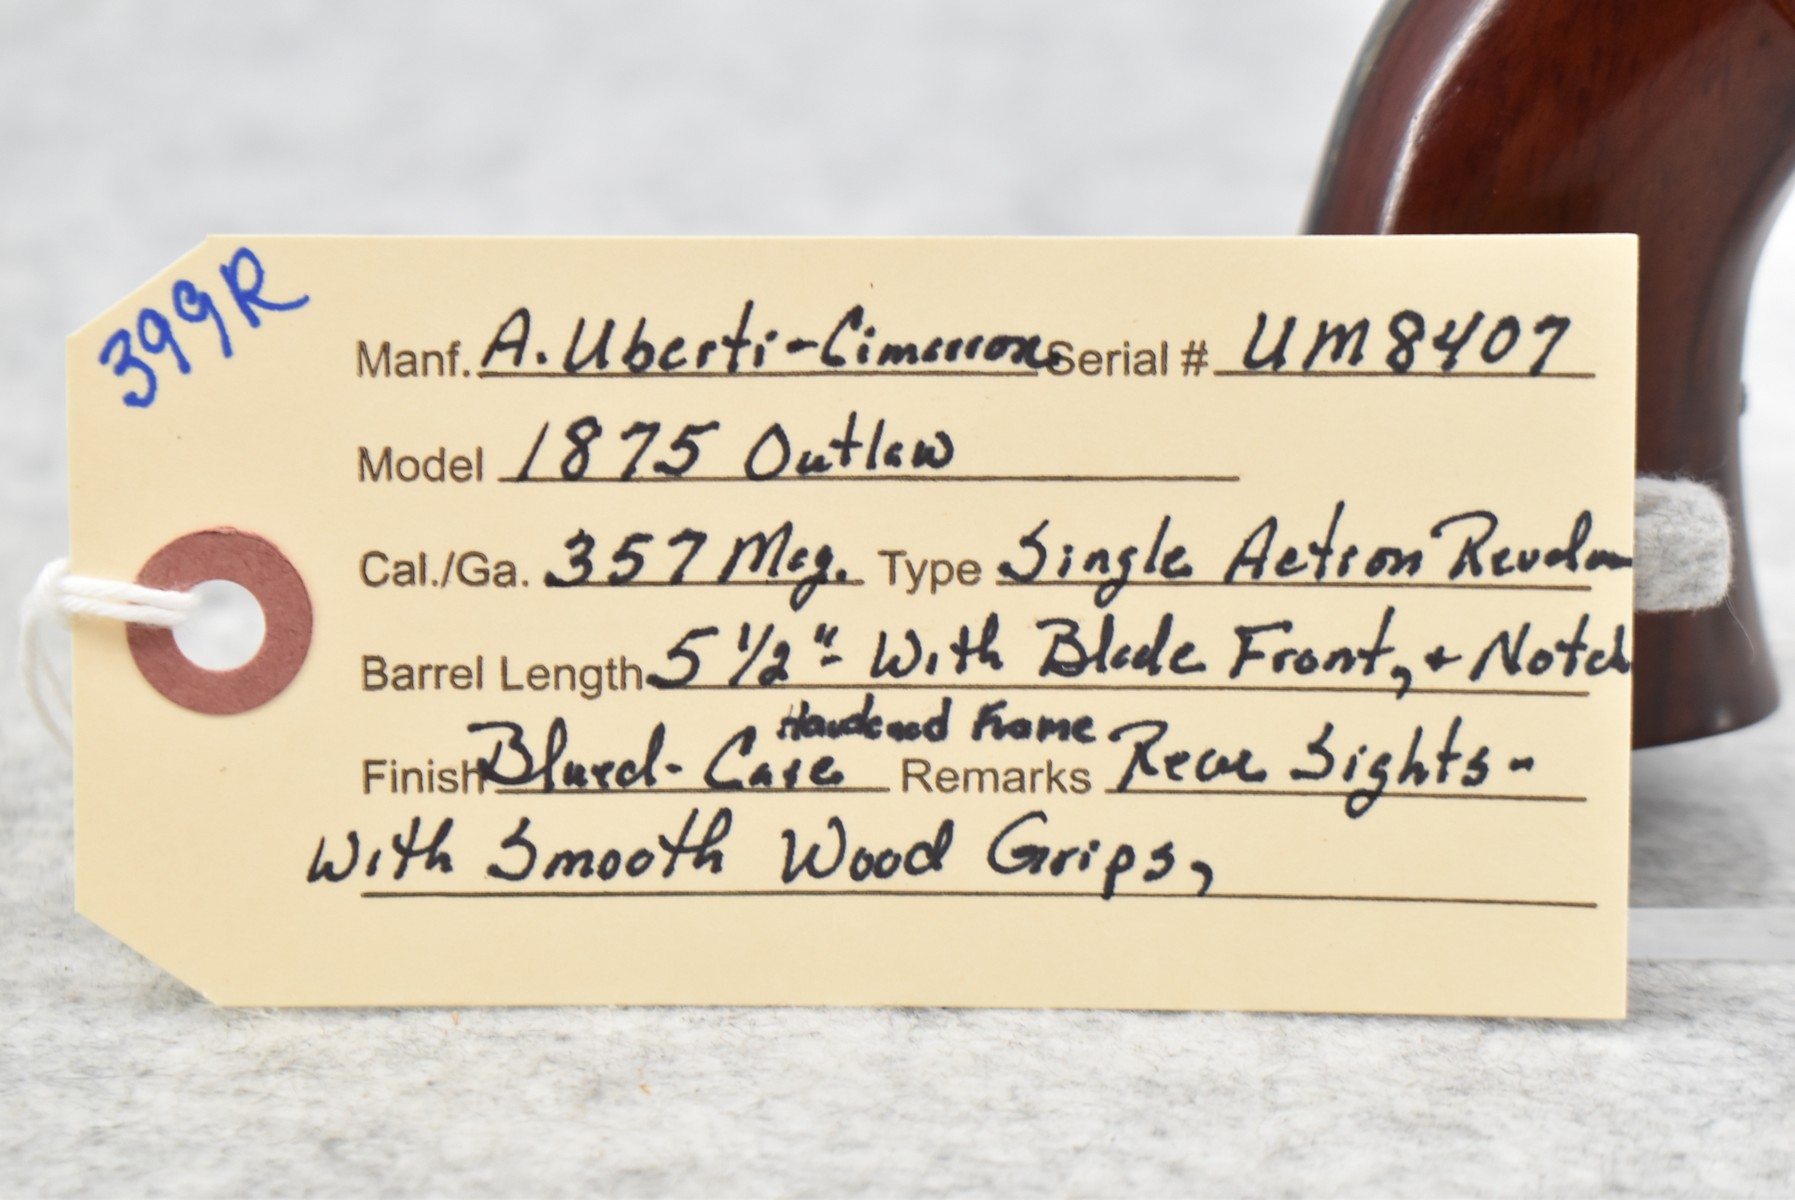 399R
Manf. A. Uberti-Cimarrone Serial # UM8407
Model 1875 Outlaw
Cal./Ga. 357 Mag. Type Single Action Revolver
Barrel Length 5 1/2"- With Blade Front, + Notch
Hardened Frame
Finish Blued- Case Remarks Rear Sights-
With Smooth Wood Grips,